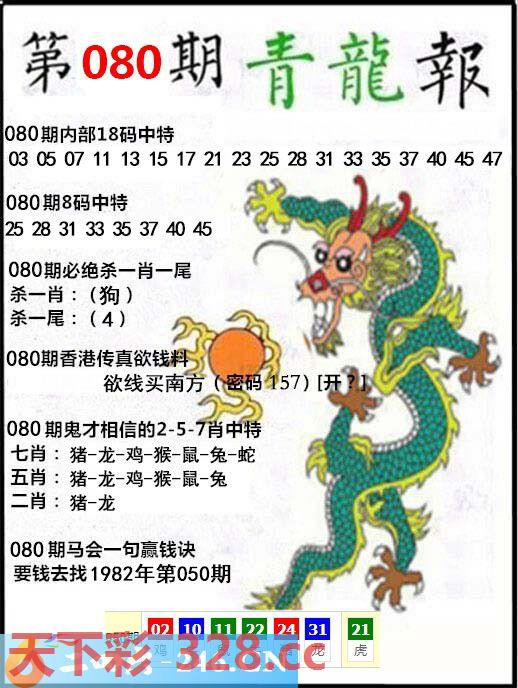 第080期青龍報
080期内部18码中特
03 05 07 11 13 15 17 21 23 25 28 31 33 35 37 40 45 47
080期8码中特
25 28 31 33 35 37 40 45
080期必绝杀一肖一尾
杀一肖：（狗）
杀一尾：（4）
080期香港传真欲钱料
欲线买南方（密码157）[开？]
080期鬼才相信的2-5-7肖中特
七肖：猪-龙-鸡-猴-鼠-兔-蛇
五肖：猪-龙-鸡-猴-鼠-兔
二肖：猪-龙
080期马会一句赢钱诀
要钱去找1982年第050期
02 10 11 22 24 31 21
鸡 龙 虎
天下彩-328.cc